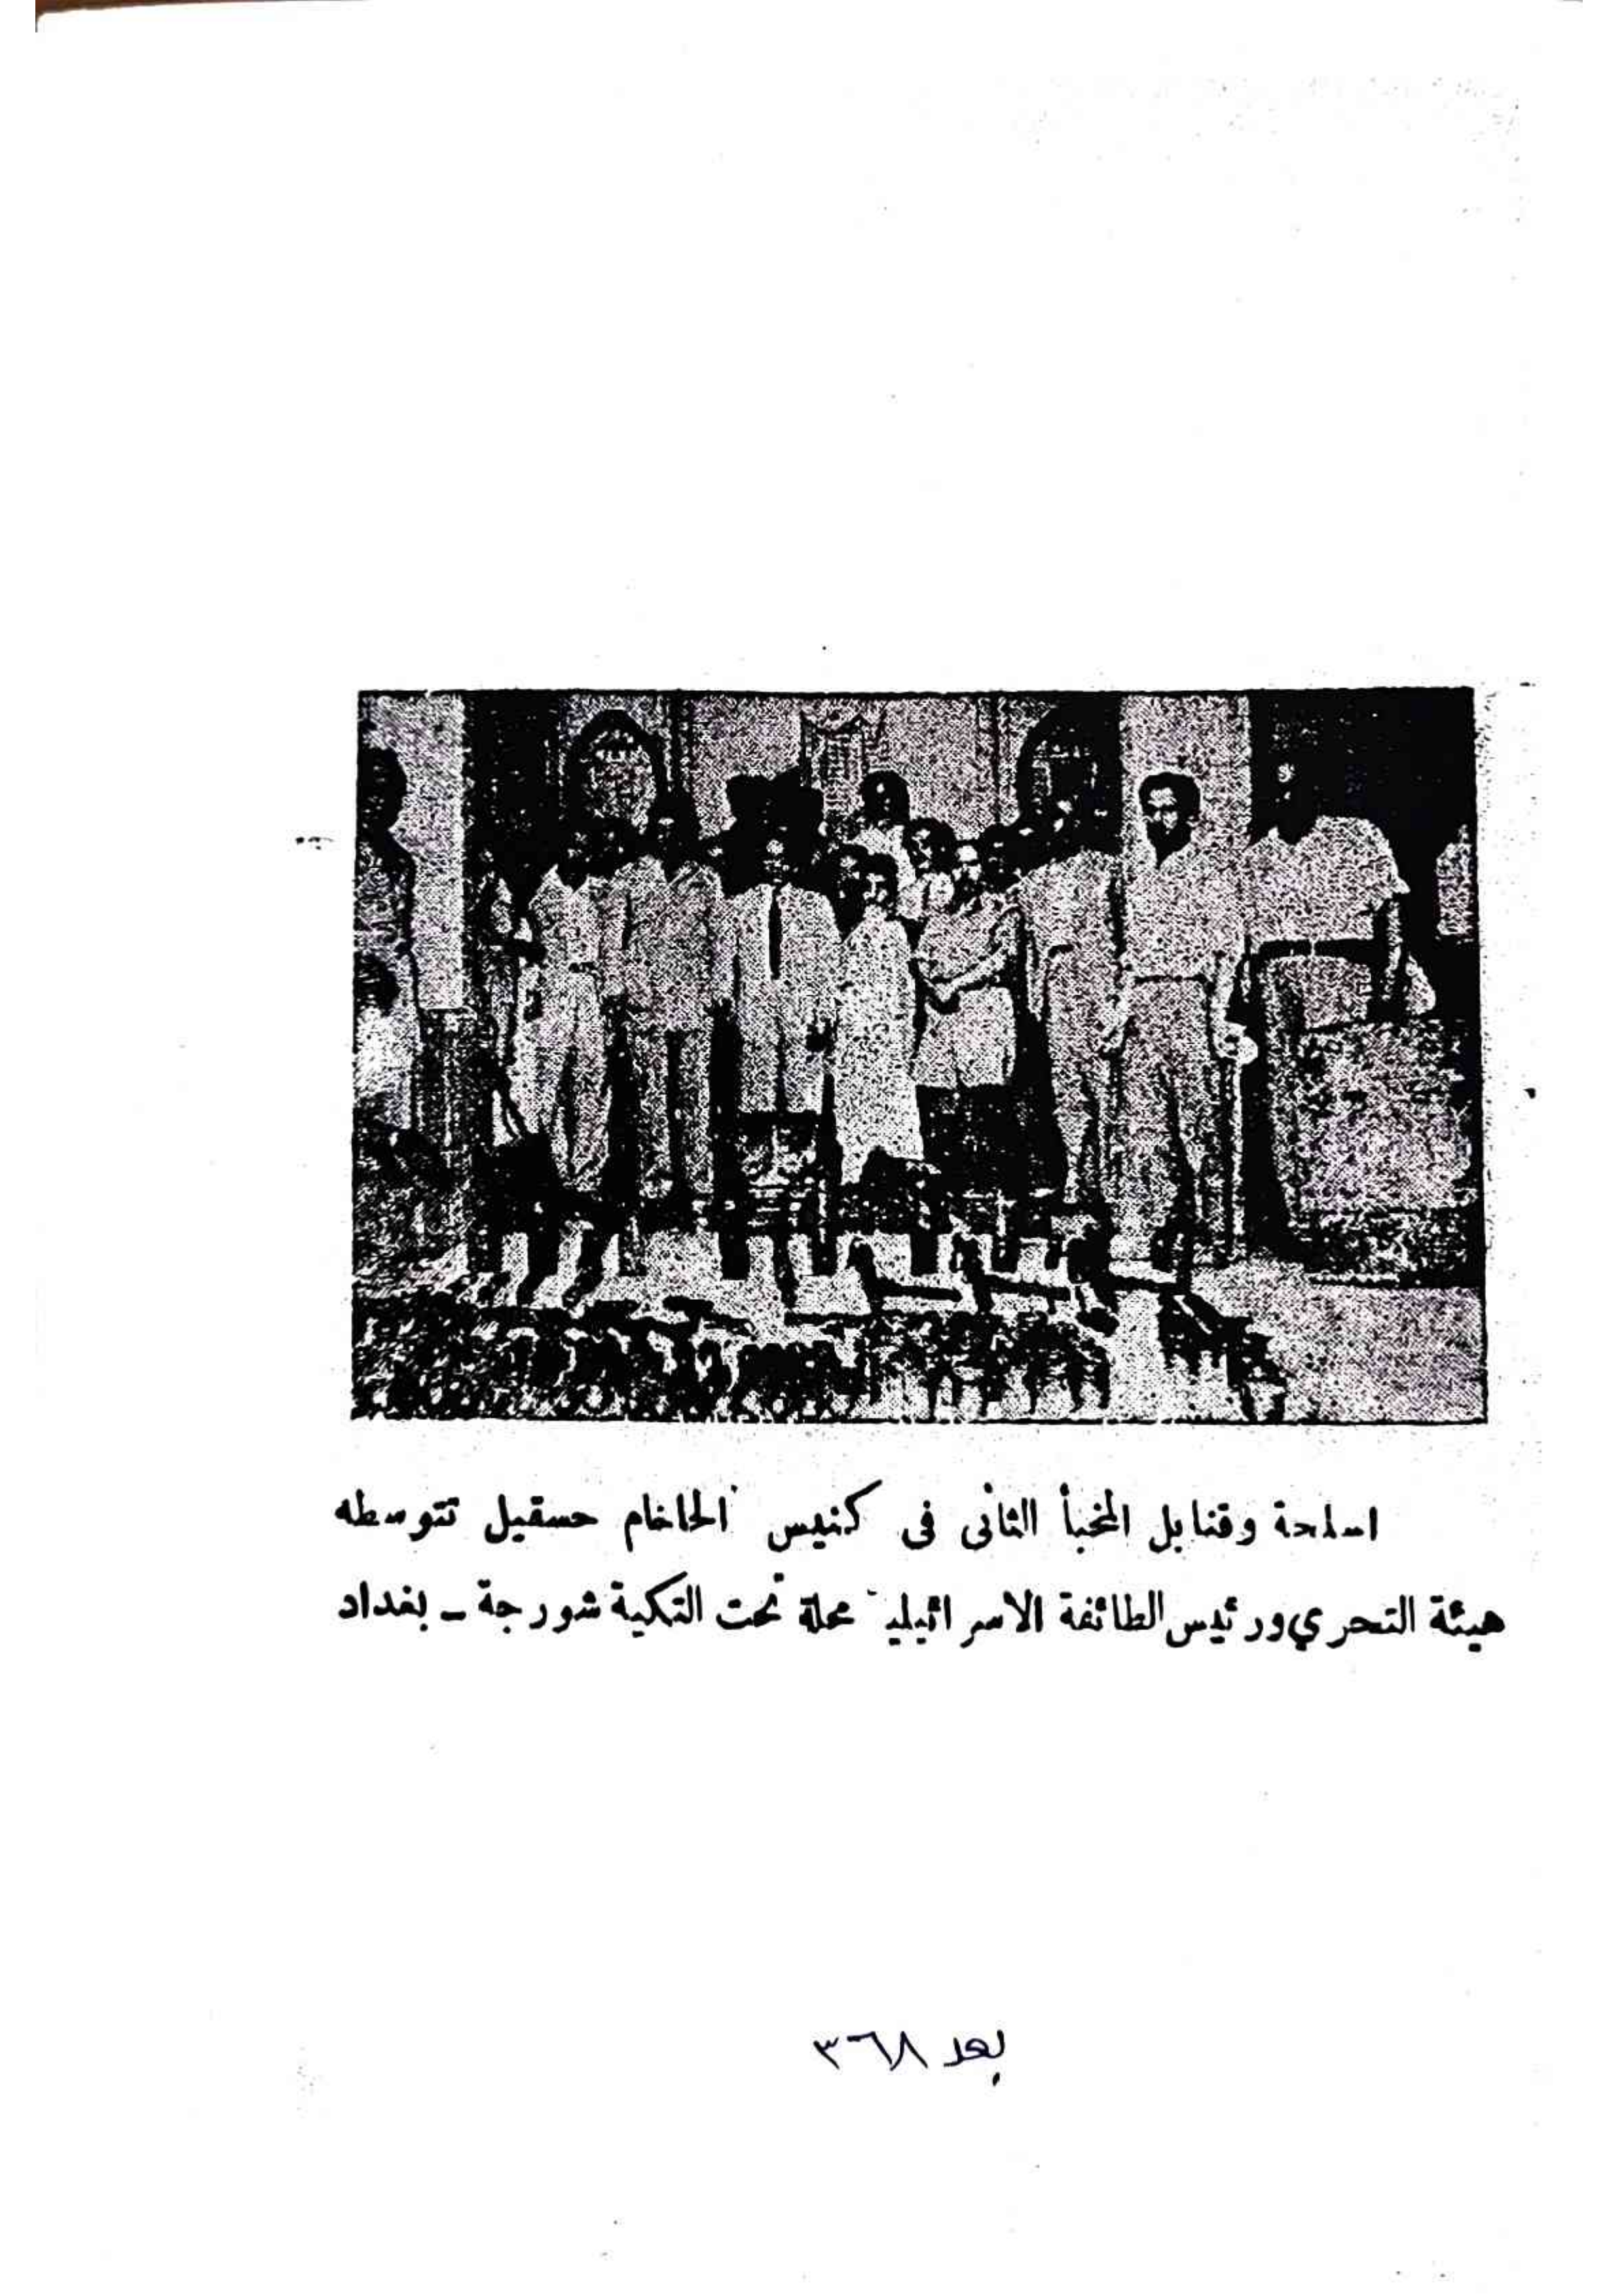 اسلحة وقنابل المخبأ الثانى فى كنيس الحاخام حسقيل تتوسطه
هيئة التحري ورئيس الطائفة الاسرائيلية محلة تحت التكية شورجة ـ بغداد
بعد ٣٦٨